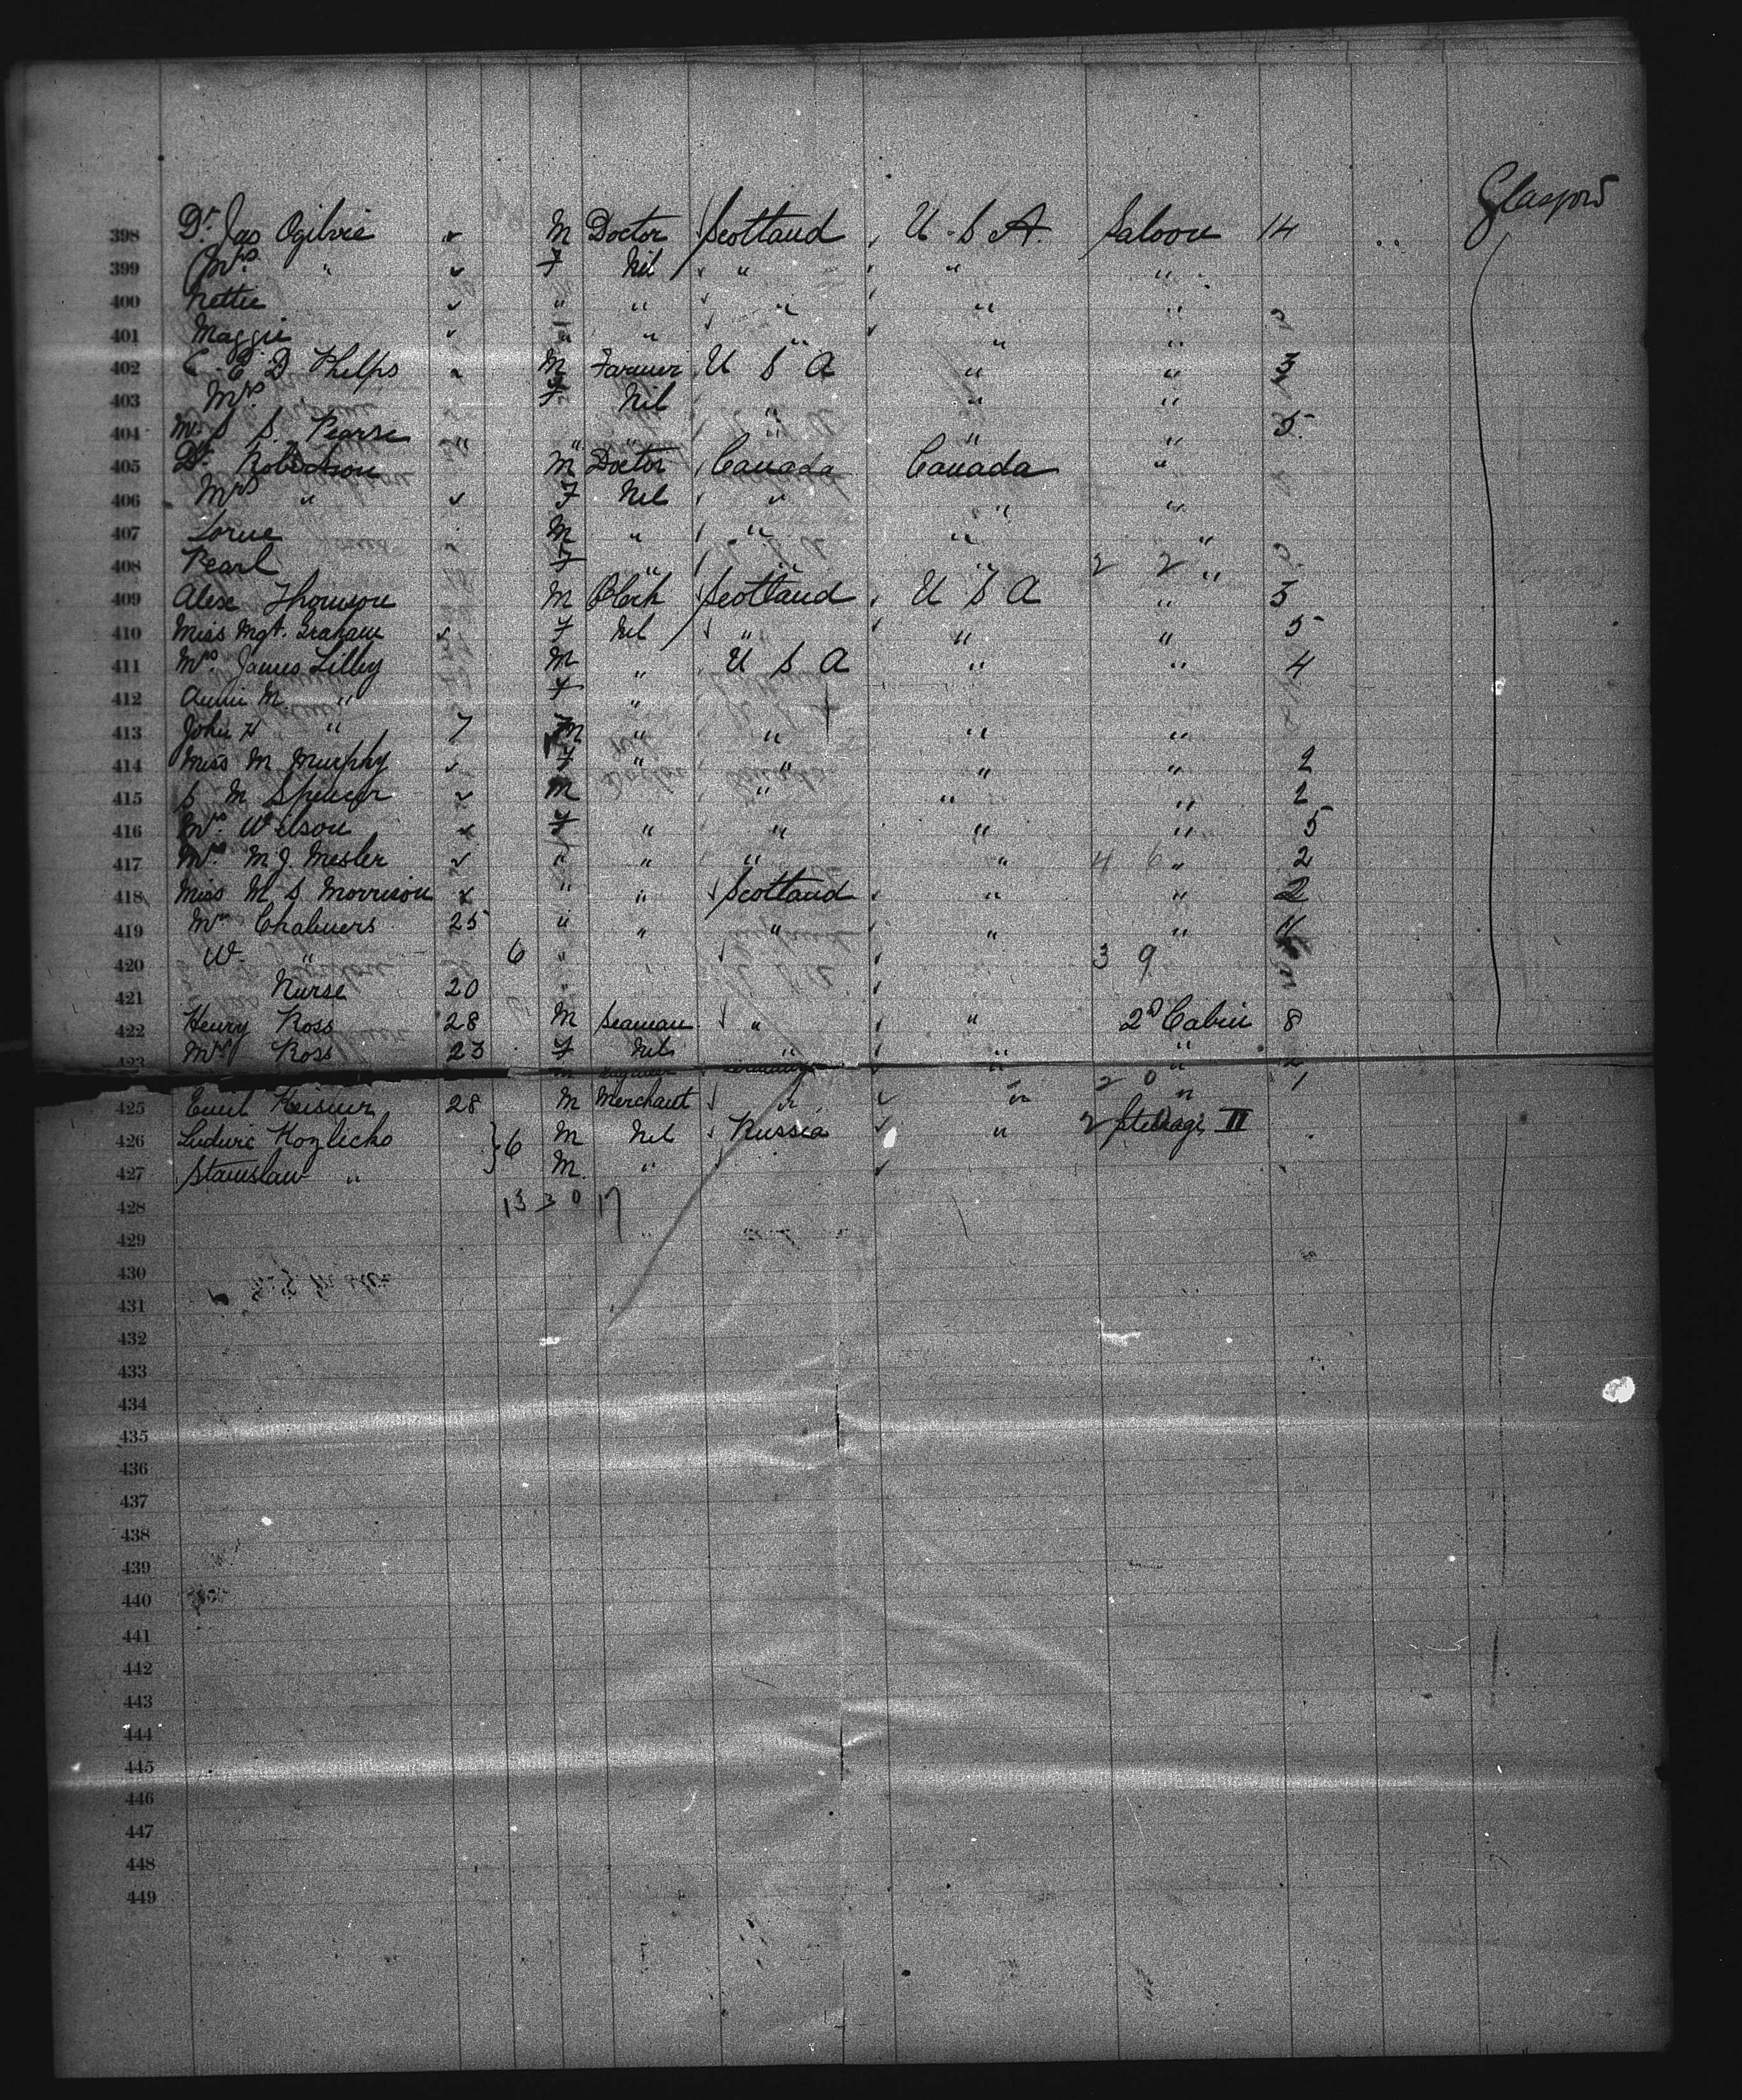 Glasgow
398 Dr. Jas Ogilvie " M Doctor Scotland U.S.A. Saloon 14
399 Mrs " " F Nil " " "
400 Nettie " " " " " "
401 Maggie " " " " " "
402 C. E. D Phelps " M Farmer U S A " " 3
403 Mrs F Nil " " "
404 S. S. Pearse " " " " " " 5
405 Dr. Robertson M Doctor Canada Canada "
406 Mrs " " F Nil " " "
407 Lorne M " " " "
408 Pearl F " " " 2 2 "
409 Alex Thomson M Scotland U S A " 3
410 Miss Mgt. Graham " F Nil " " " 5
411 Mrs. James Lilley M " U S A " " 4
412 Annie M. " F "
413 John H " 7 M " " " "
414 Miss M Murphy " F " " " " 2
415 S M Spencer " M " " " 2
416 Mrs. Wilson " F " " " " 5
417 Mrs. M. J. Mesler " " " " " 4 6 " 2
418 Miss M S Morrison " " " Scotland " " 2
419 Mrs Chalmers 25 " " " " " 11
420 W. " 6 " " 3 9
421 Nurse 20
422 Henry Ross 28 M Seaman " " 2D Cabin 8
423 Mrs Ross 23 F Nil " " "
2 0
425 Emil 28 M Merchant " " "
426 Ludwic Kozlicko } 6 M Nil Russia " 2 Steerage II
427 Stanislaw " M "
428 13 3 0 17
429
430
431
432
433
434
435
436
437
438
439
440
441
442
443
444
445
446
447
448
449